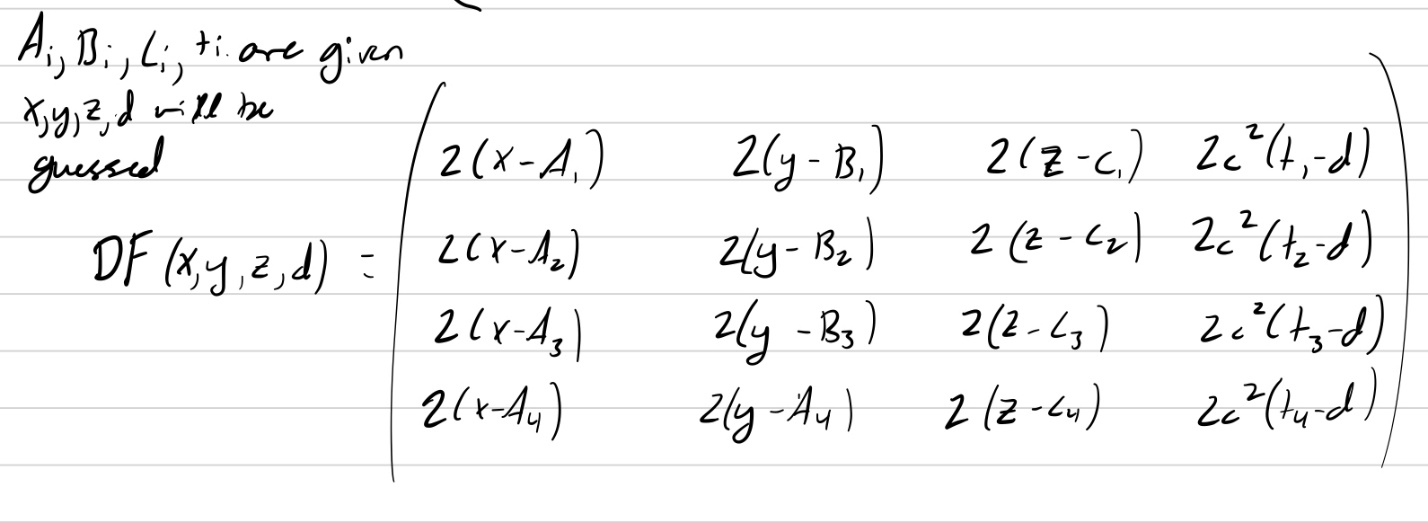 A_i, B_i, C_i, t_i are given
x, y, z, d will be
guessed
2(x-A_1) 2(y-B_1) 2(z-C_1) 2c^2(t_1-d)
2(x-A_2) 2(y-B_2) 2(z-C_2) 2c^2(t_2-d)
DF(x,y,z,d) =
2(x-A_3) 2(y-B_3) 2(z-C_3) 2c^2(t_3-d)
2(x-A_4) 2(y-A_4) 2(z-C_4) 2c^2(t_4-d)